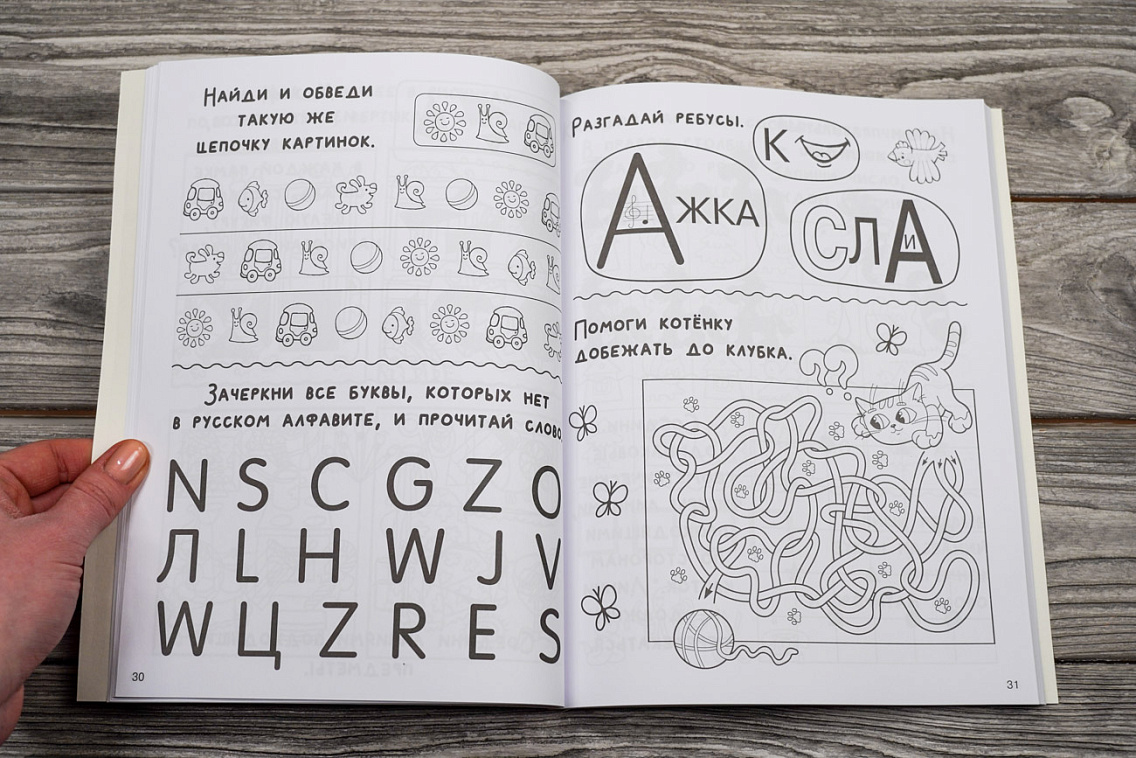 Найди и обведи
такую же
цепочку картинок.
Зачеркни все буквы, которых нет
в русском алфавите, и прочитай слово
N S C G Z O
Л L H W J V
W Ц Z R E S
30
Разгадай ребусы.
К
А ЖКА
СЛА
И
Помоги котёнку
добежать до клубка.
??
31